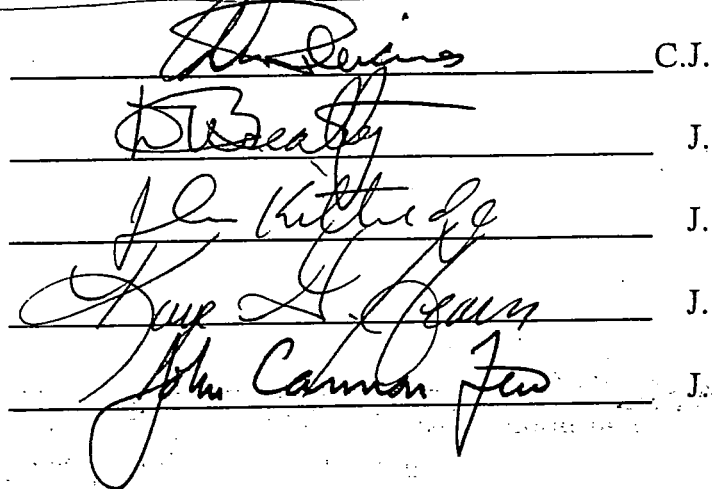 C.J.
D W Beatty J.
John Kittredge J.
Kaye G. Hearn J.
John Cannon Few J.